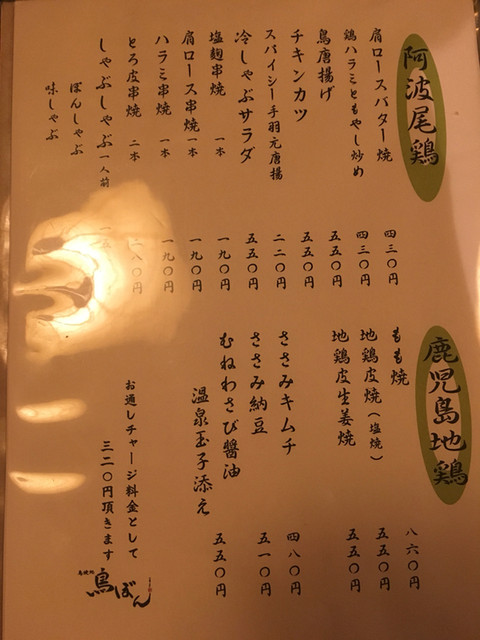 阿波尾鶏
肩ロースバター焼 四三〇円
鶏ハラミともやし炒め 四三〇円
鳥唐揚げ 五五〇円
チキンカツ 五五〇円
スパイシー手羽元唐揚 二二〇円
冷しゃぶサラダ 五五〇円
塩麹串焼 一本 一九〇円
肩ロース串焼 一本 一九〇円
ハラミ串焼 一本 一九〇円
とろ皮串焼 二本
しゃぶしゃぶ 一人前
ぽんしゃぶ
味しゃぶ
鹿児島地鶏
もも焼 八六〇円
地鶏皮焼(塩焼) 五五〇円
地鶏皮生姜焼 五五〇円
ささみキムチ 四八〇円
ささみ納豆 五一〇円
むねわさび醤油
温泉玉子添え 五五〇円
お通しチャージ料金として
三二〇円頂きます
鳥ぼん